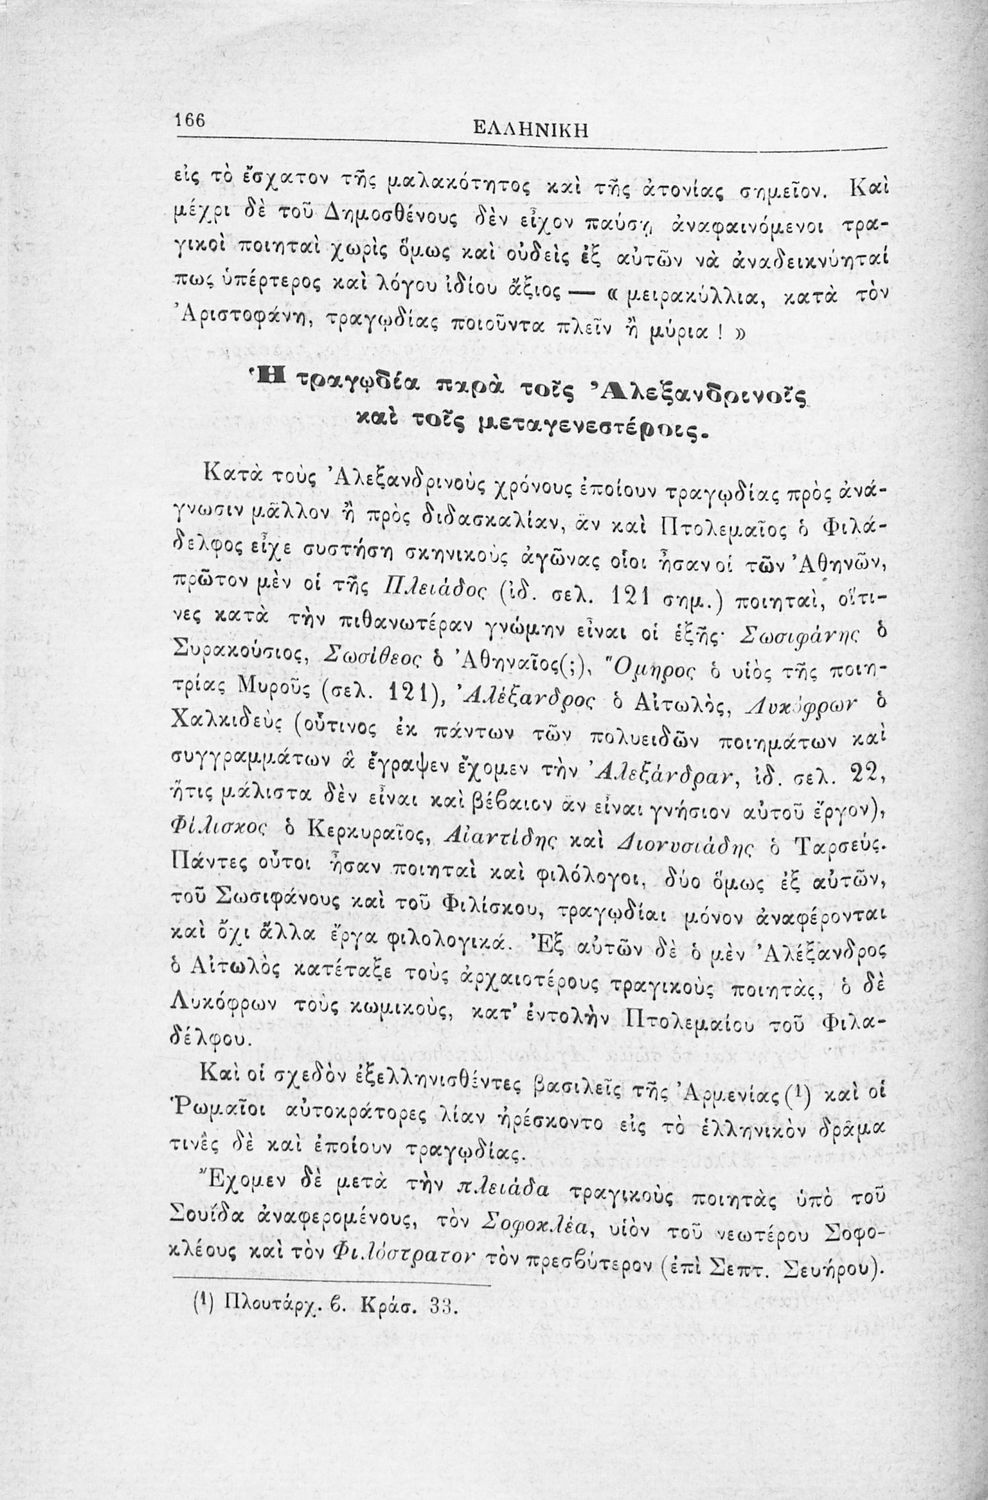 166
ΕΛΛΗΝΙΚΗ
εἰς τὸ ἔσχατον τῆς μαλακότητος καὶ τῆς ἀτονίας σημεῖον. Καὶ
μέχρι δὲ τοῦ Δημοσθένους δὲν εἶχον παύσῃ ἀναφαινόμενοι τρα-
γικοὶ ποιηταὶ χωρὶς ὅμως καὶ οὐδεὶς ἐξ αὐτῶν νὰ ἀναδεικνύηταί
πως ὑπέρτερος καὶ λόγου ἰδίου ἄξιος — « μειρακύλλια, κατὰ τὸν
Ἀριστοφάνη, τραγῳδίας ποιοῦντα πλεῖν ἢ μύρια ! »
Ἡ τραγῳδία παρὰ τοῖς Ἀλεξανδρινοῖς
καὶ τοῖς μεταγενεστέροις.
Κατὰ τοὺς Ἀλεξανδρινοὺς χρόνους ἐποίουν τραγῳδίας πρὸς ἀνά-
γνωσιν μᾶλλον ἢ πρὸς διδασκαλίαν, ἂν καὶ Πτολεμαῖος ὁ Φιλά-
δελφος εἶχε συστήση σκηνικοὺς ἀγῶνας οἷοι ἦσαν οἱ τῶν Ἀθηνῶν,
πρῶτον μὲν οἱ τῆς Πλειάδος (ἰδ. σελ. 121 σημ.) ποιηταὶ, οἵτι-
νες κατὰ τὴν πιθανωτέραν γνώμην εἶναι οἱ ἑξῆς· Σωσιφάνης ὁ
Συρακούσιος, Σωσίθεος ὁ Ἀθηναῖος(;), Ὅμηρος ὁ υἱὸς τῆς ποιη-
τρίας Μυροῦς (σελ. 121), Ἀλέξανδρος ὁ Αἰτωλὸς, Λυκόφρων ὁ
Χαλκιδεὺς (οὗτινος ἐκ πάντων τῶν πολυειδῶν ποιημάτων καὶ
συγγραμμάτων ἃ ἔγραψεν ἔχομεν τὴν Ἀλεξάνδραν, ἰδ. σελ. 22,
ἥτις μάλιστα δὲν εἶναι καὶ βέβαιον ἂν εἶναι γνήσιον αὐτοῦ ἔργον),
Φίλισκος ὁ Κερκυραῖος, Αἰαντίδης καὶ Διονυσιάδης ὁ Ταρσεύς.
Πάντες οὗτοι ἦσαν ποιηταὶ καὶ φιλόλογοι, δύο ὅμως ἐξ αὐτῶν,
τοῦ Σωσιφάνους καὶ τοῦ Φιλίσκου, τραγῳδίαι μόνον ἀναφέρονται
καὶ ὄχι ἄλλα ἔργα φιλολογικά. Ἐξ αὐτῶν δὲ ὁ μὲν Ἀλέξανδρος
ὁ Αἰτωλὸς κατέταξε τοὺς ἀρχαιοτέρους τραγικοὺς ποιητὰς, ὁ δὲ
Λυκόφρων τοὺς κωμικοὺς, κατ' ἐντολὴν Πτολεμαίου τοῦ Φιλα-
δέλφου.
Καὶ οἱ σχεδὸν ἐξελληνισθέντες βασιλεῖς τῆς Ἀρμενίας (1) καὶ οἱ
Ῥωμαῖοι αὐτοκράτορες λίαν ἠρέσκοντο εἰς τὸ ἑλληνικὸν δρᾶμα
τινὲς δὲ καὶ ἐποίουν τραγῳδίας.
Ἔχομεν δὲ μετὰ τὴν πλειάδα τραγικοὺς ποιητὰς ὑπὸ τοῦ
Σουΐδα ἀναφερομένους, τὸν Σοφοκλέα, υἱὸν τοῦ νεωτέρου Σοφο-
κλέους καὶ τὸν Φιλόστρατον τὸν πρεσβύτερον (ἐπὶ Σεπτ. Σευήρου).
(1) Πλουτάρχ. β. Κράσ. 33.